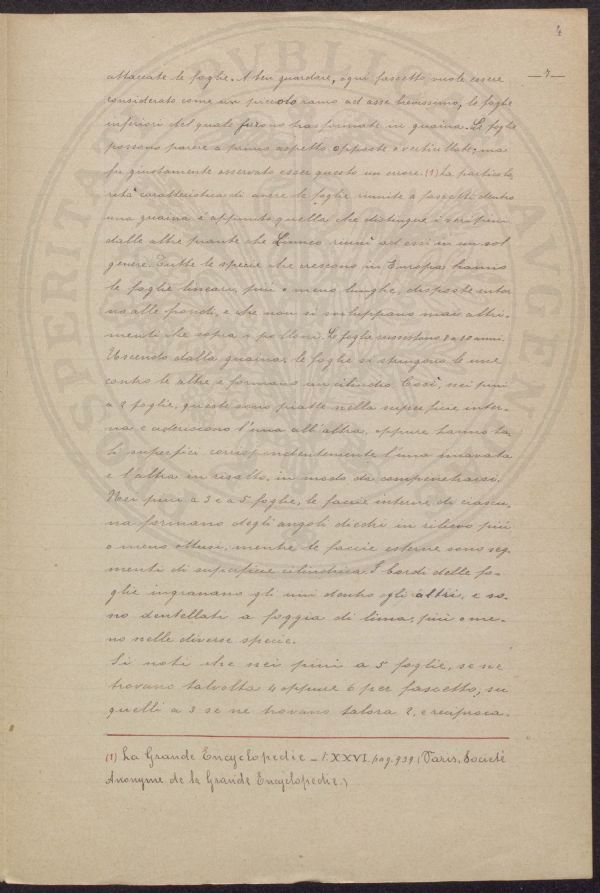 4
— 7 —
attaccate le foglie. A ben guardare, ogni fascetto vuole essere
considerato come un piccolo ramo ad asse brevissimo, le foglie
inferiori del quale furono trasformate in guaina. Le foglie
possono parere a primo aspetto opposte o verticillate; ma
fu giustamente osservato esser questo un errore. (1) La particola
rità caratteristica di avere le foglie riunite a fascetti dentro
una guaina è appunto quella che distingue i veri pini
dalle altre piante che Linneo riunì ad essi in un sol
genere. Tutte le specie che crescono in Europa hanno
le foglie lineari, più o meno lunghe, disposte intor
no alle frondi, e che non si sviluppano mai altri-
menti che sopra i polloni. Le foglie sussistono 8 a 10 anni.
Uscendo dalla guaina, le foglie si stringono le une
contro le altre e formano un cilindro. Così, nei pini
a 2 foglie, queste sono piatte nella superficie inter-
na e aderiscono l'una all'altra, oppure hanno ta
li superfici corrispondentemente l'una incavata
e l'altra in risalto, in modo da compenetrarsi.
Nei pini a 3 e a 5 foglie, le faccie interne di ciascu,
na formano degli angoli diedri in rilievo più
o meno ottusi, mentre le faccie esterne sono seg-
menti di superficie cilindrica. I bordi delle fo-
glie ingranano gli uni dentro gli altri, e so-
no dentellati a foggia di lima, più o me-
no nelle diverse specie.
Si noti che nei pini a 5 foglie, se ne
trovano talvolta 4 oppure 6 per fascetto; in
quelli a 3 se ne trovano talora 2, e reciproca-
(1) La Grande Encyclopedie - t. XXVI. pag. 939. (Paris, Société
Anonyme de la Grande Encyclopedie.)